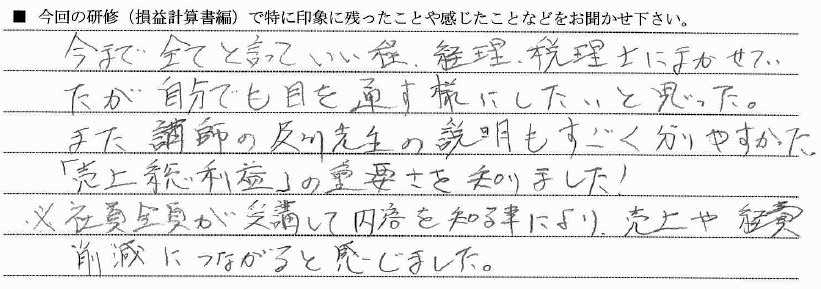 ■ 今回の研修（損益計算書編）で特に印象に残ったことや感じたことなどをお聞かせ下さい。
今まで全てと言っていい程、経理、税理士にまかせてい
たが自分でも目を通す様にしたいと思った。
また講師の及川先生の説明もすごく分りやすかった。
「売上総利益」の重要さを知りました!
※社員全員が受講して内容を知る事により、売上や経費
削減につながると感じました。